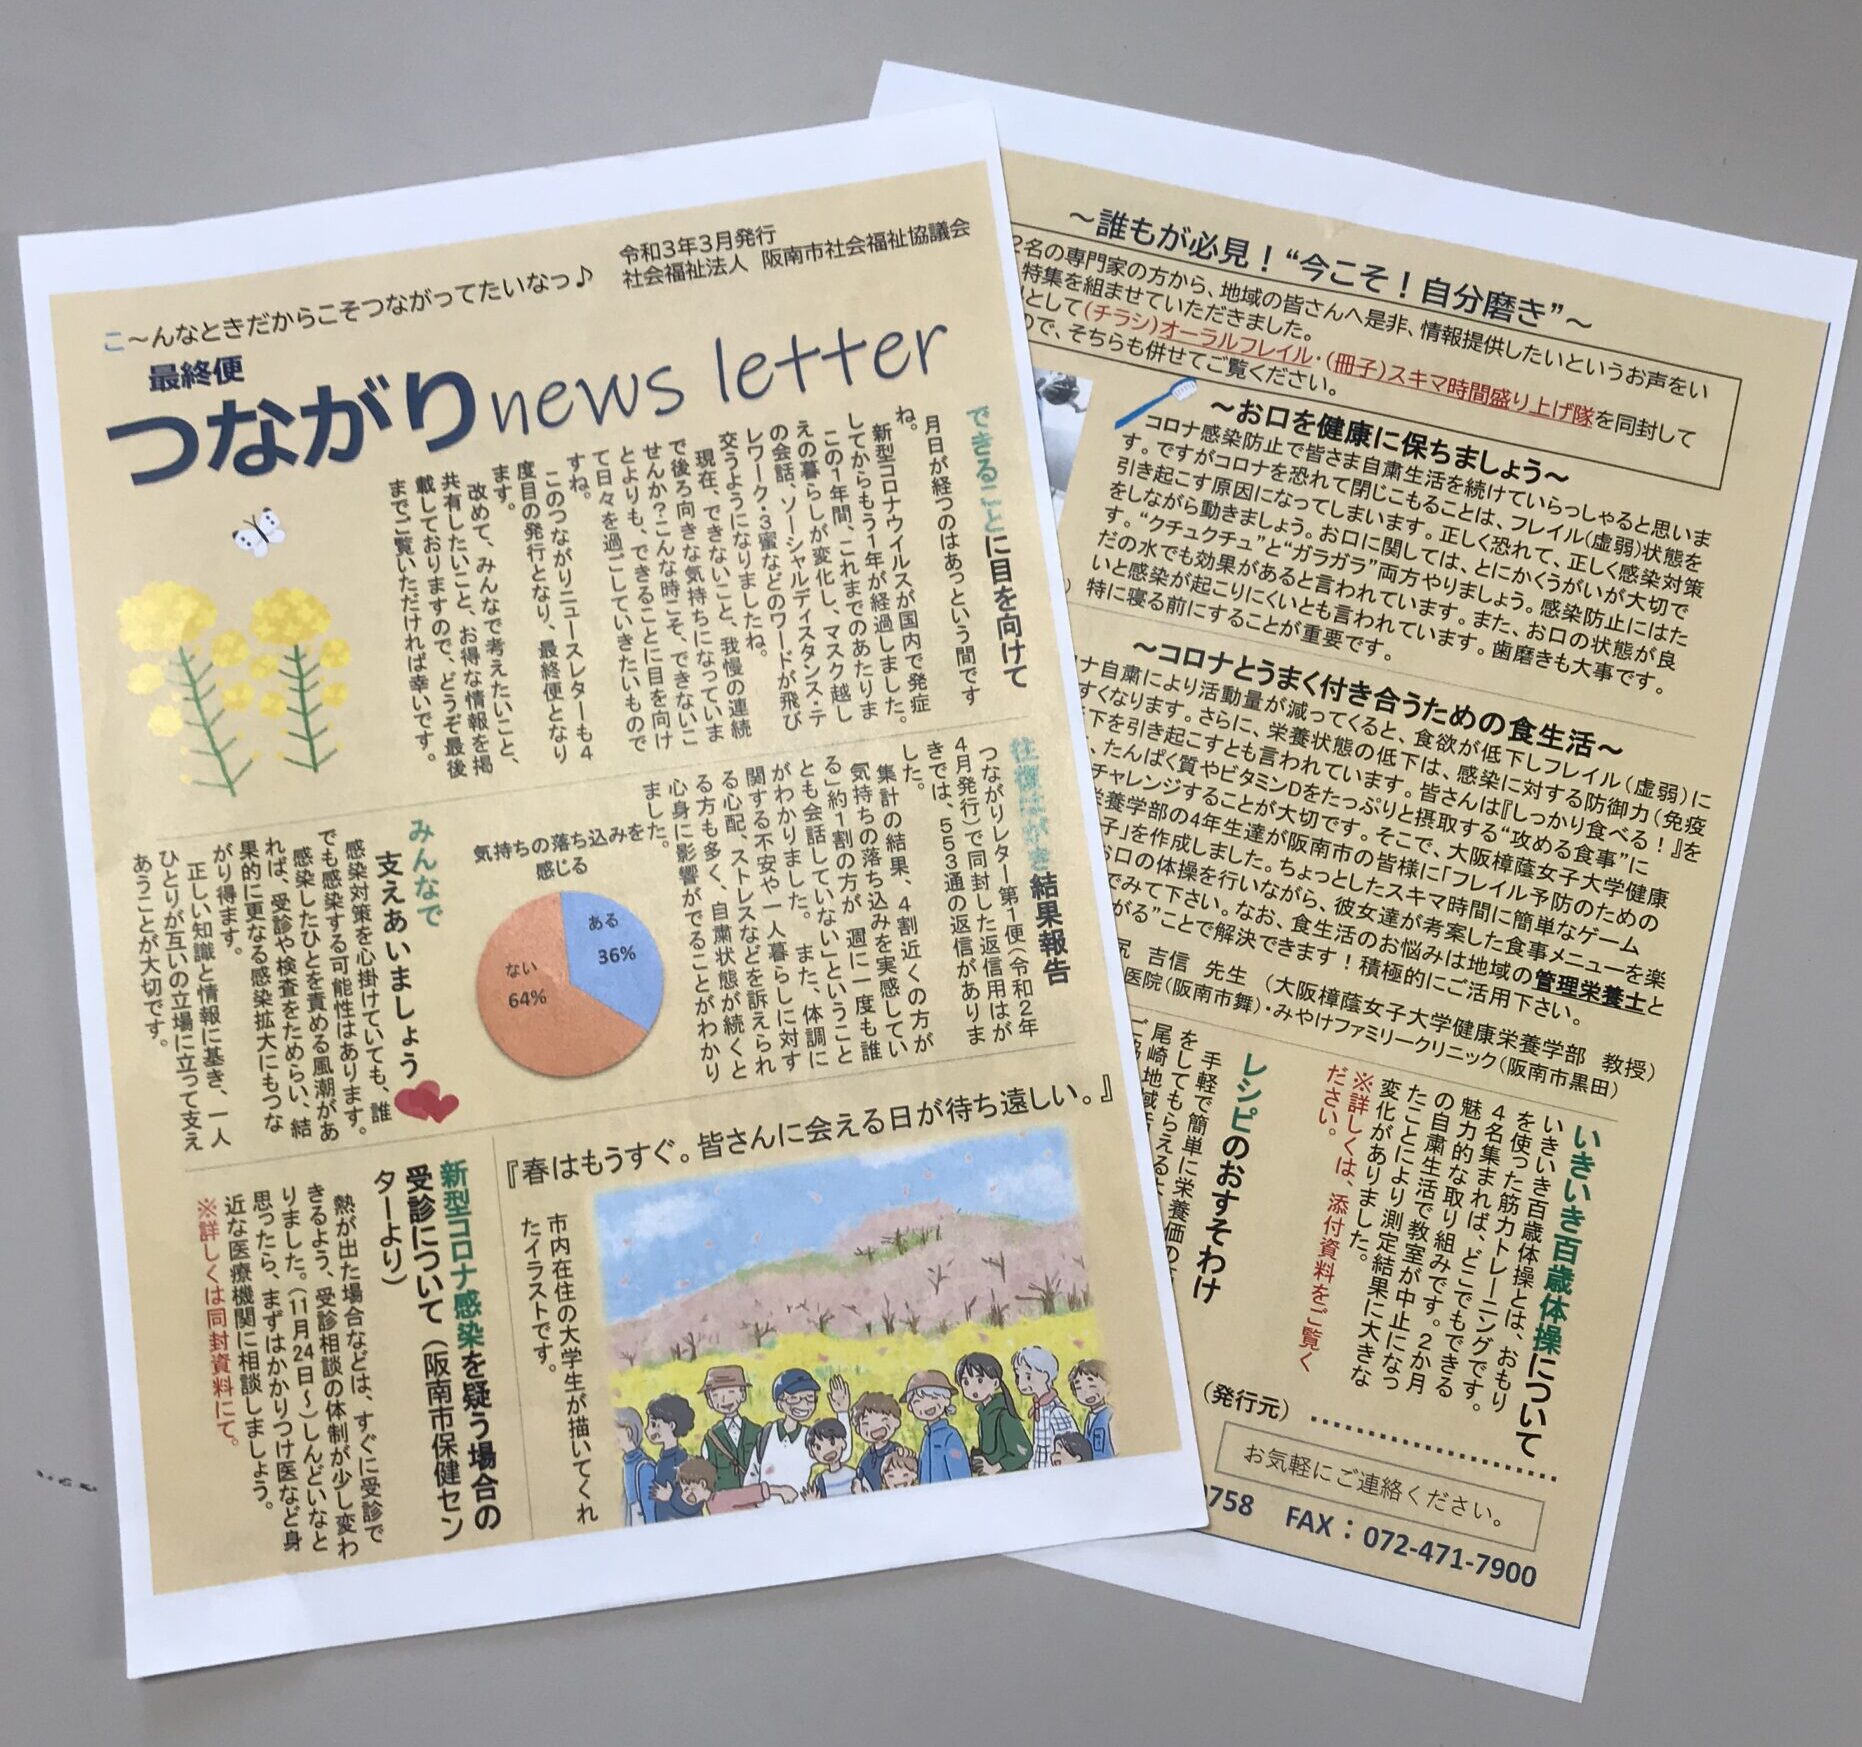 こ～んなときだからこそつながってたいなっ♪
令和3年3月発行
社会福祉法人 阪南市社会福祉協議会
最終便
つながりnews letter
できることに目を向けて
月日が経つのはあっという間です
ね。
新型コロナウイルスが国内で発症
してからもう1年が経過しました。
この1年間、これまでのあたりま
えの暮らしが変化し、マスク越し
の会話、ソーシャルディスタンス・テ
レワーク・3蜜などのワードが飛び
交うようになりましたね。
現在、できないこと、我慢の連続
で後ろ向きな気持ちになっていま
せんか？こんな時こそ、できないこ
とよりも、できることに目を向け
て日々を過ごしていきたいもので
すね。
このつながりニュースレターも4
度目の発行となり、最終便となり
ます。
改めて、みんなで考えたいこと、
共有したいこと、お得な情報を掲
載しておりますので、どうぞ最後
までご覧いただければ幸いです。
往復はがき結果報告
つながりレター第1便（令和2年
4月発行）で同封した返信用はが
きでは、553通の返信がありま
した。
集計の結果、4割近くの方が
「気持ちの落ち込みを実感してい
る」約1割の方が「週に一度も誰
とも会話していない」ということ
がわかりました。また、体調に
関する不安や一人暮らしに対す
る心配、ストレスなどを訴えられ
る方も多く、自粛状態が続くと
心身に影響がでることがわかり
ました。
気持ちの落ち込みを
感じる
ある
36%
ない
64%
みんなで
支えあいましょう
感染対策を心掛けていても、誰
でも感染する可能性はあります。
感染したひとを責める風潮があ
れば、受診や検査をためらい、結
果的に更なる感染拡大にもつな
がり得ます。
正しい知識と情報に基き、一人
ひとりが互いの立場に立って支え
あうことが大切です。
『春はもうすぐ。皆さんに会える日が待ち遠しい。』
市内在住の大学生が描いてくれ
たイラストです。
新型コロナ感染を疑う場合の
受診について（阪南市保健セン
ターより）
熱が出た場合などは、すぐに受診で
きるよう、受診相談の体制が少し変わ
りました。（11月24日～）しんどいなと
思ったら、まずはかかりつけ医など身
近な医療機関に相談しましょう。
※詳しくは同封資料にて。
～誰もが必見！“今こそ！自分磨き”～
2名の専門家の方から、地域の皆さんへ是非、情報提供したいというお声をい
特集を組ませていただきました。
として(チラシ)オーラルフレイル・(冊子)スキマ時間盛り上げ隊を同封して
ので、そちらも併せてご覧ください。
～お口を健康に保ちましょう～
コロナ感染防止で皆さま自粛生活を続けていらっしゃると思いま
す。ですがコロナを恐れて閉じこもることは、フレイル(虚弱)状態を
引き起こす原因になってしまいます。正しく恐れて、正しく感染対策
をしながら動きましょう。お口に関しては、とにかくうがいが大切で
す。“クチュクチュ”と“ガラガラ”両方やりましょう。感染防止にはた
だの水でも効果があると言われています。また、お口の状態が良
いと感染が起こりにくいとも言われています。歯磨きも大事です。
特に寝る前にすることが重要です。
～コロナとうまく付き合うための食生活～
ナ自粛により活動量が減ってくると、食欲が低下しフレイル（虚弱）に
すくなります。さらに、栄養状態の低下は、感染に対する防御力（免疫
下を引き起こすとも言われています。皆さんは『しっかり食べる！』を
、たんぱく質やビタミンDをたっぷりと摂取する“攻める食事”に
チャレンジすることが大切です。そこで、大阪樟蔭女子大学健康
栄養学部の4年生達が阪南市の皆様に「フレイル予防のための
子」を作成しました。ちょっとしたスキマ時間に簡単なゲーム
お口の体操を行いながら、彼女達が考案した食事メニューを楽
でみて下さい。なお、食生活のお悩みは地域の管理栄養士と
がる”ことで解決できます！積極的にご活用下さい。
尻 吉信 先生 （大阪樟蔭女子大学健康栄養学部 教授）
医院(阪南市舞)・みやけファミリークリニック(阪南市黒田)
いきいき百歳体操について
いきいき百歳体操とは、おもり
を使った筋力トレーニングです。
4名集まれば、どこでもできる
魅力的な取り組みです。2か月
の自粛生活で教室が中止になっ
たことにより測定結果に大きな
変化がありました。
※詳しくは、添付資料をご覧く
ださい。
レシピのおすそわけ
手軽で簡単に栄養価の
をしてもらえるよ
尾崎地域
（発行元）
お気軽にご連絡ください。
0758 FAX：072-471-7900